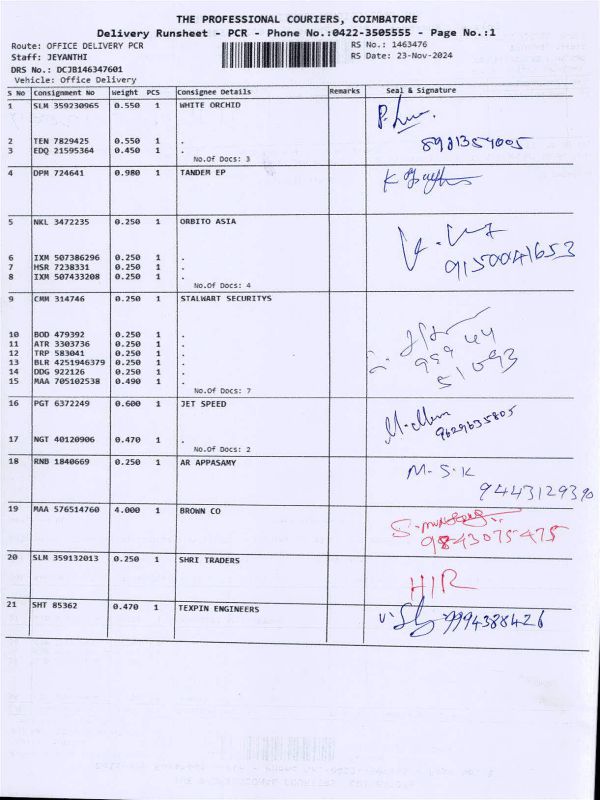 THE PROFESSIONAL COURIERS, COIMBATORE
Delivery Runsheet - PCR - Phone No.:0422-3505555 - Page No.:1
Route: OFFICE DELIVERY PCR RS No.: 1463476
Staff: JEYANTHI RS Date: 23-Nov-2024
DRS No.: DCJB146347601
Vehicle: Office Delivery
S No Consignment No Weight PCS Consignee Details Remarks Seal & Signature
1 SLM 359230965 0.550 1 WHITE ORCHID
2 TEN 7829425 0.550 1 .
3 EDQ 21595364 0.450 1 .
No.Of Docs: 3
4 DPM 724641 0.980 1 TANDEM EP
5 NKL 3472235 0.250 1 ORBITO ASIA
6 IXM 507386296 0.250 1 .
9150041653
7 HSR 7238331 0.250 1 .
8 IXM 507433208 0.250 1 .
No.Of Docs: 4
9 CMM 314746 0.250 1 STALWART SECURITYS
10 BOD 479392 0.250 1 .
11 ATR 3303736 0.250 1 .
12 TRP 583041 0.250 1 .
13 BLR 4251946379 0.250 1 .
14 DDG 922126 0.250 1 .
15 MAA 705102538 0.490 1 .
No.Of Docs: 7
16 PGT 6372249 0.600 1 JET SPEED
9629635805
17 NGT 40120906 0.470 1 .
No.Of Docs: 2
18 RNB 1840669 0.250 1 AR APPASAMY M.S.K
9443129390
19 MAA 576514760 4.000 1 BROWN CO
9843075475
20 SLM 359132013 0.250 1 SHRI TRADERS
HIR
21 SHT 85362 0.470 1 TEXPIN ENGINEERS 9994388426